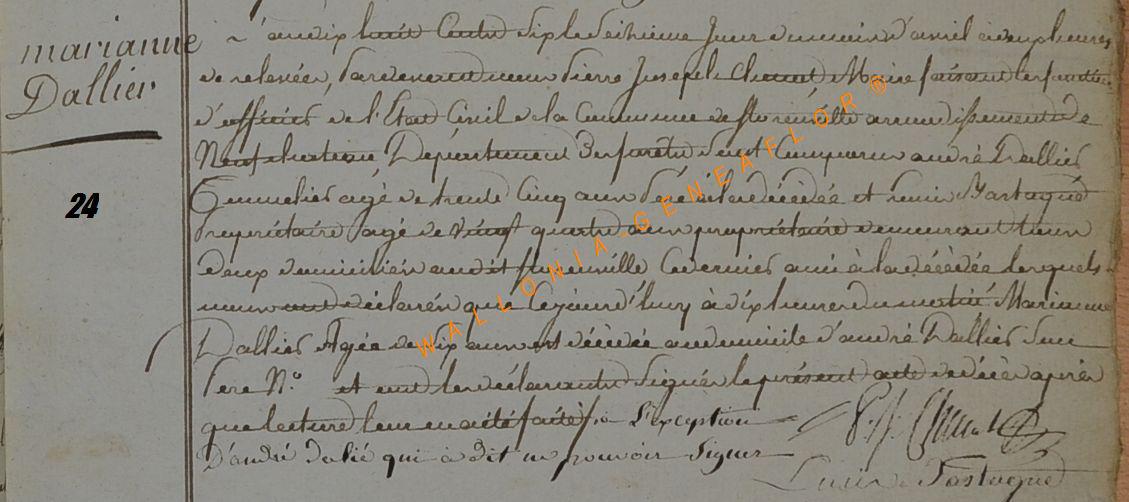 marianne
Dallier
24
~ an dix huit Centu dix le Seitieme Jour du moin d'avril à deux heures
de relevée, Pardevant nous Pierre Joseph Chenot Maire faisant les fonctions
d'officier de l'Etat Civil de la Commune de Florenville arrondissement de
Neufchateau Departement des forêtes Sont Comparus andré Dallier
agé de trente Cinq ans Pere à la décédée et Tastague
Propriétaire agé de vingt quatre ans propriétaire demeurant tous
deux domicilien audit florenville Ce dernier ami à la décédée lesquels
nous ont déclarés que Cejourd'huy à dix heures du matin Marianne
Dallier Agée de Six ans est décédée au domicile d'andré Dallier Son
Pere N.o et ont les déclarants Signés le présent acte de décès aprés
que lecture leur en a été faite, à L'exception
D'andré dalié qui à dit ne pouvoir Signer
P. J. Chenot
Tastague
WALLONIA-GENEAFLOR ®